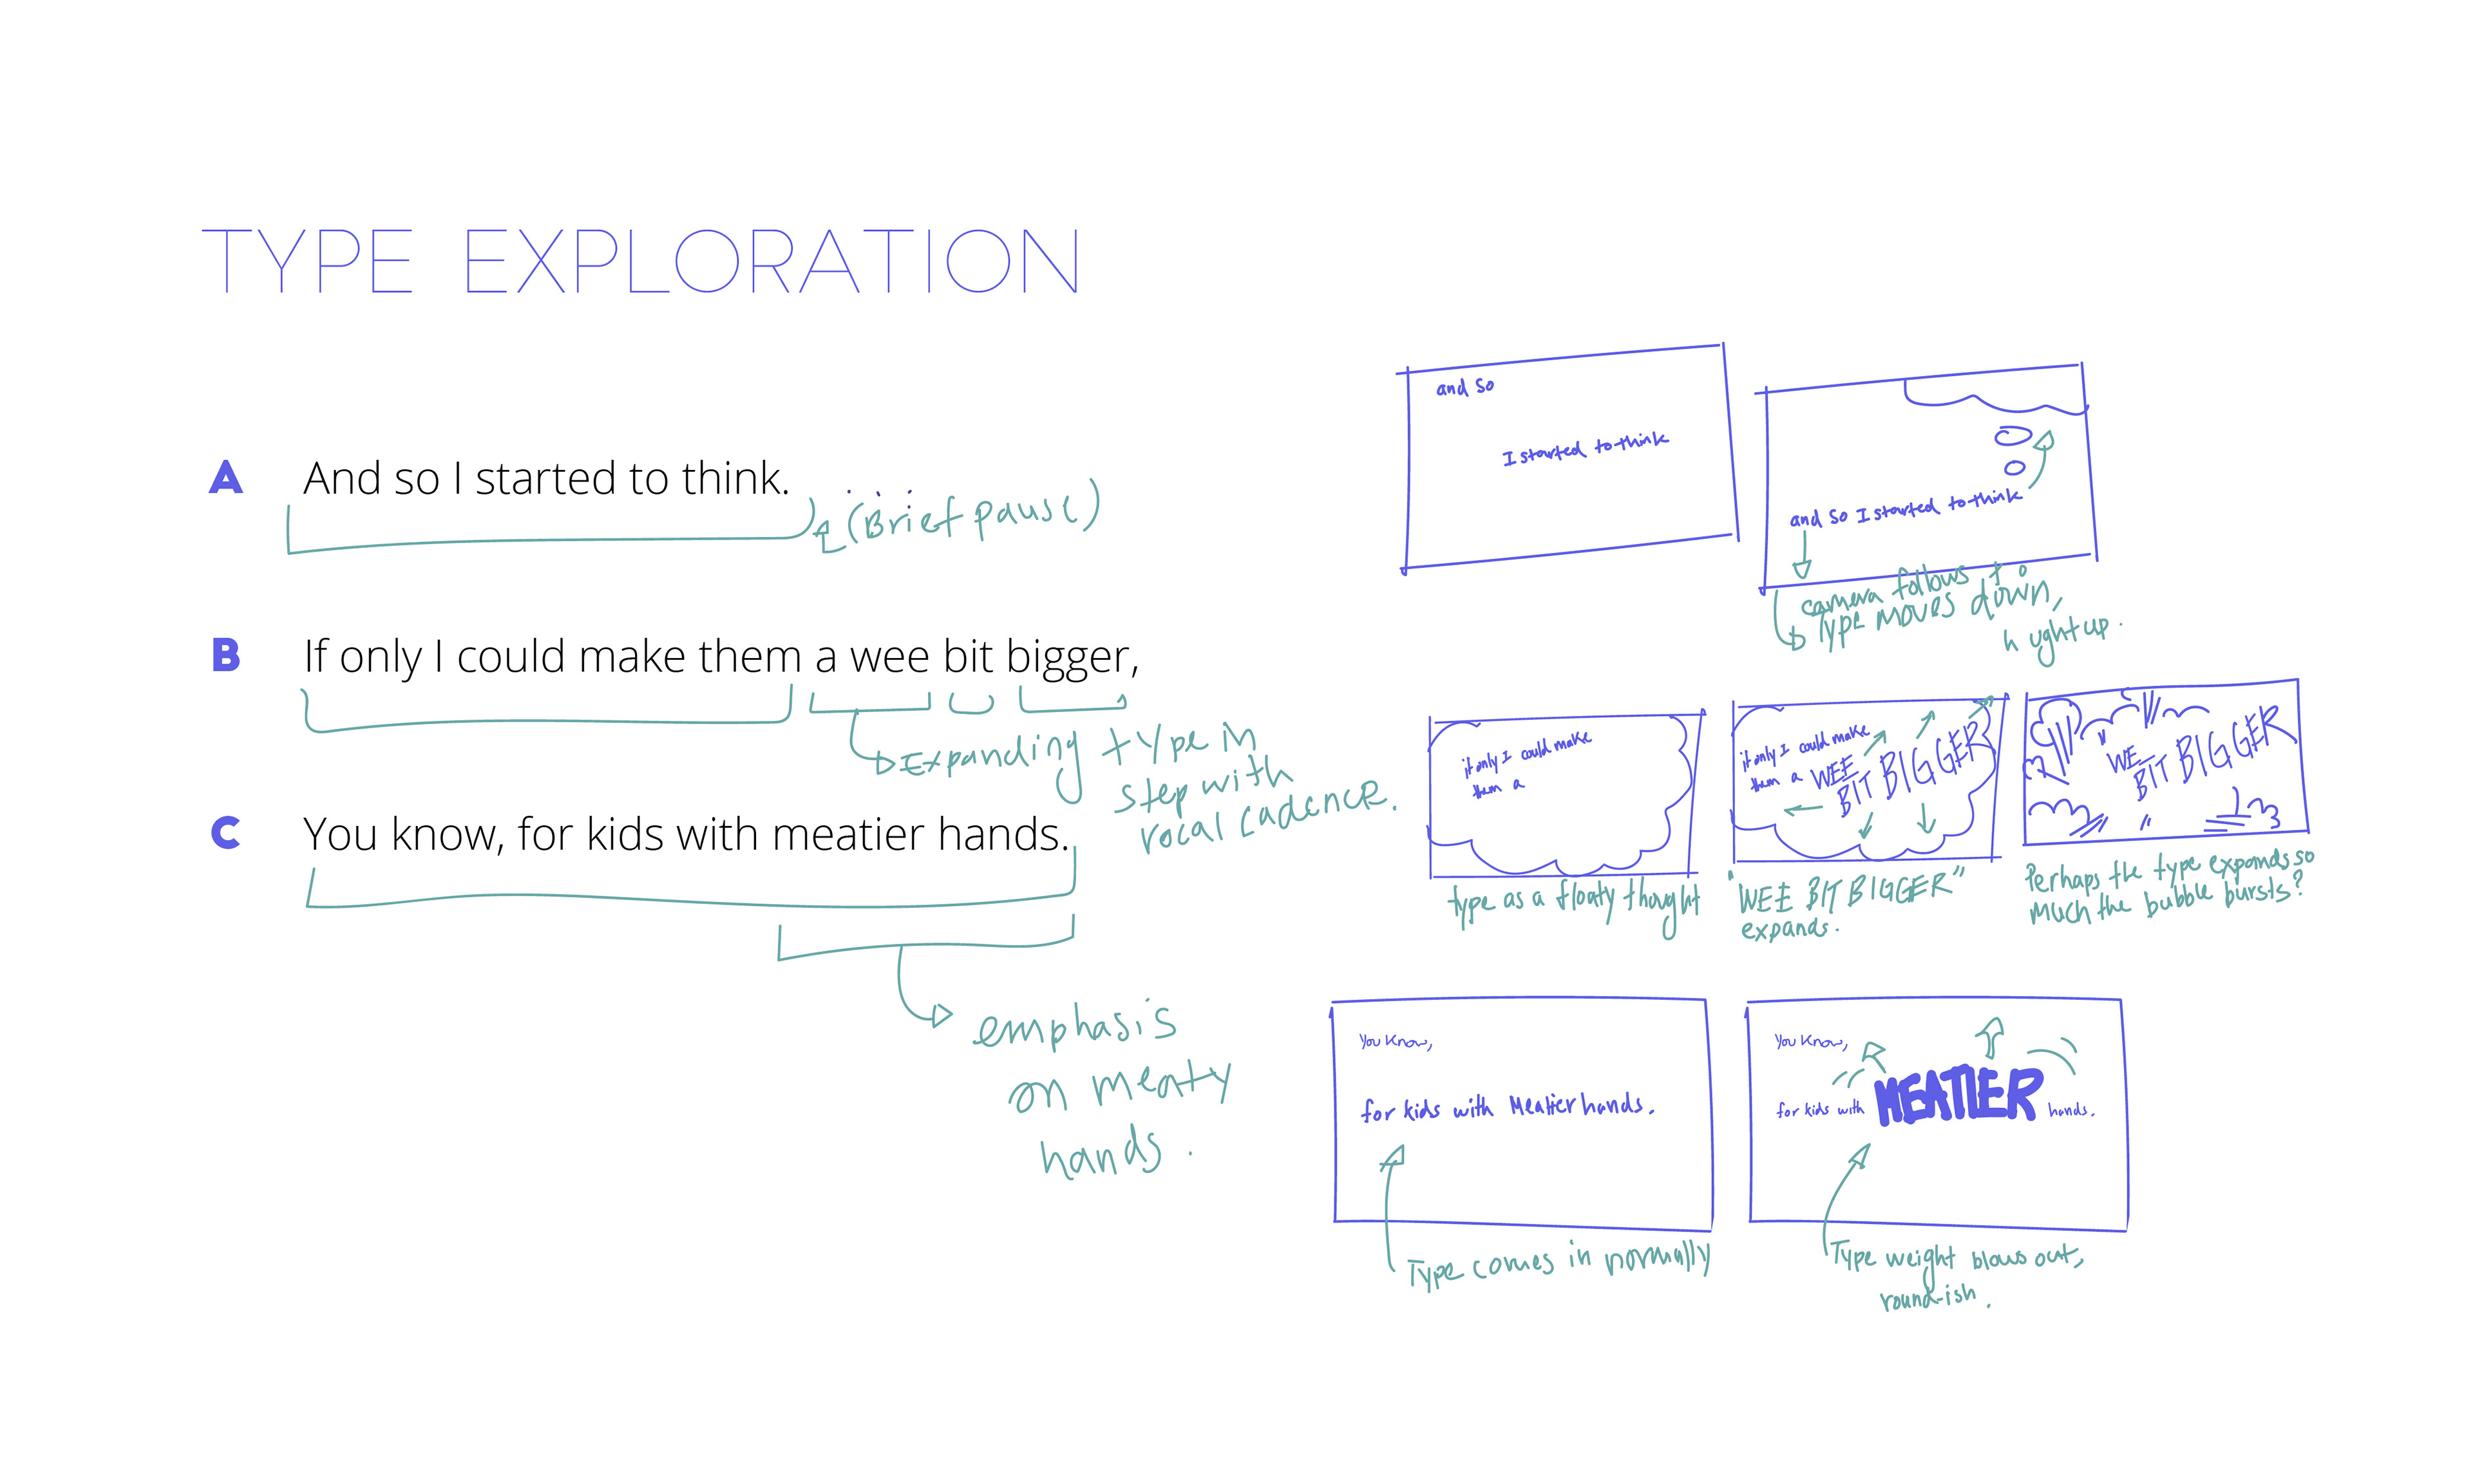 TYPE EXPLORATION
A And so I started to think.
(Brief pause)
B If only I could make them a wee bit bigger,
Expanding type in
step with
vocal cadence.
C You know, for kids with meatier hands.
emphasis
on meaty
hands.
and so
I started to think
and so I started to think
camera follows to
Type moves down,
up.
if only I could make
them a
type as a floaty thought
if only I could make
them a WEE
BIT BIGGER
"WEE BIT BIGGER"
expands.
WEE
BIT BIGGER
Perhaps the type expands so
much the bubble bursts?
You know,
for kids with Meatier hands.
Type comes in normally
You know,
for kids with MEATIER hands.
Type weight blows out,
round-ish.